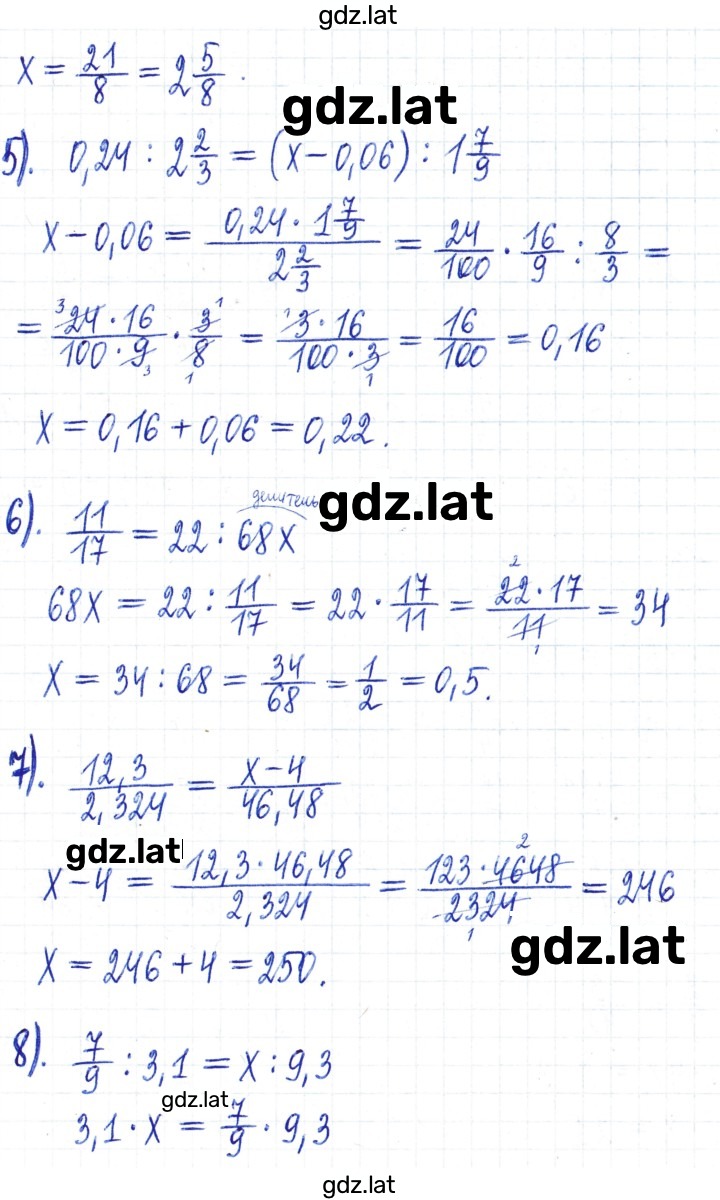 gdz.lat
x = 21/8 = 2 5/8.
gdz.lat
5). 0,24 : 2 2/3 = (x − 0,06) : 1 7/9
x − 0,06 = (0,24 · 1 7/9)/(2 2/3) = 24/100 · 16/9 : 8/3 =
= (24 · 16)/(100 · 9) · 3/8 = (3 · 16)/(100 · 3) = 16/100 = 0,16
x = 0,16 + 0,06 = 0,22.
делитель
gdz.lat
6). 11/17 = 22 : 68x
68x = 22 : 11/17 = 22 · 17/11 = (22 · 17)/11 = 34
x = 34 : 68 = 34/68 = 1/2 = 0,5.
7). 12,3/2,324 = (x − 4)/46,48
gdz.lat
x − 4 = (12,3 · 46,48)/2,324 = (123 · 4648)/2324 = 246
gdz.lat
x = 246 + 4 = 250.
8). 7/9 : 3,1 = x : 9,3
gdz.lat
3,1 · x = 7/9 · 9,3
gdz.lat